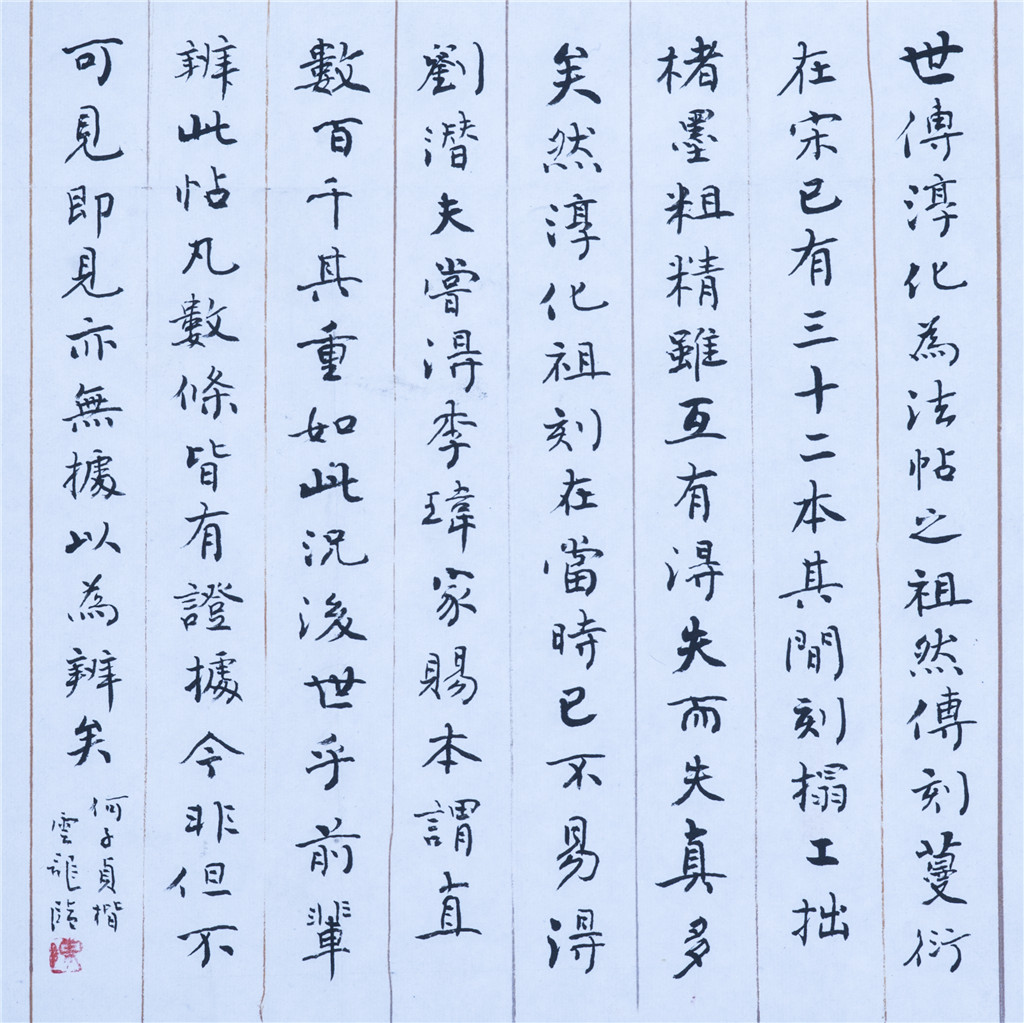 世傳淳化為法帖之祖然傳刻蔓衍
在宋已有三十二本其間刻榻工拙
楮墨粗精雖互有得失而失真多
矣然淳化祖刻在當時已不易得
劉潜夫嘗得李瑋家賜本謂直
數百千其重如此況後世乎前輩
辨此帖凡數條皆有證據今非但不
可見即見亦無據以為辨矣
何子貞楷
雲龍臨